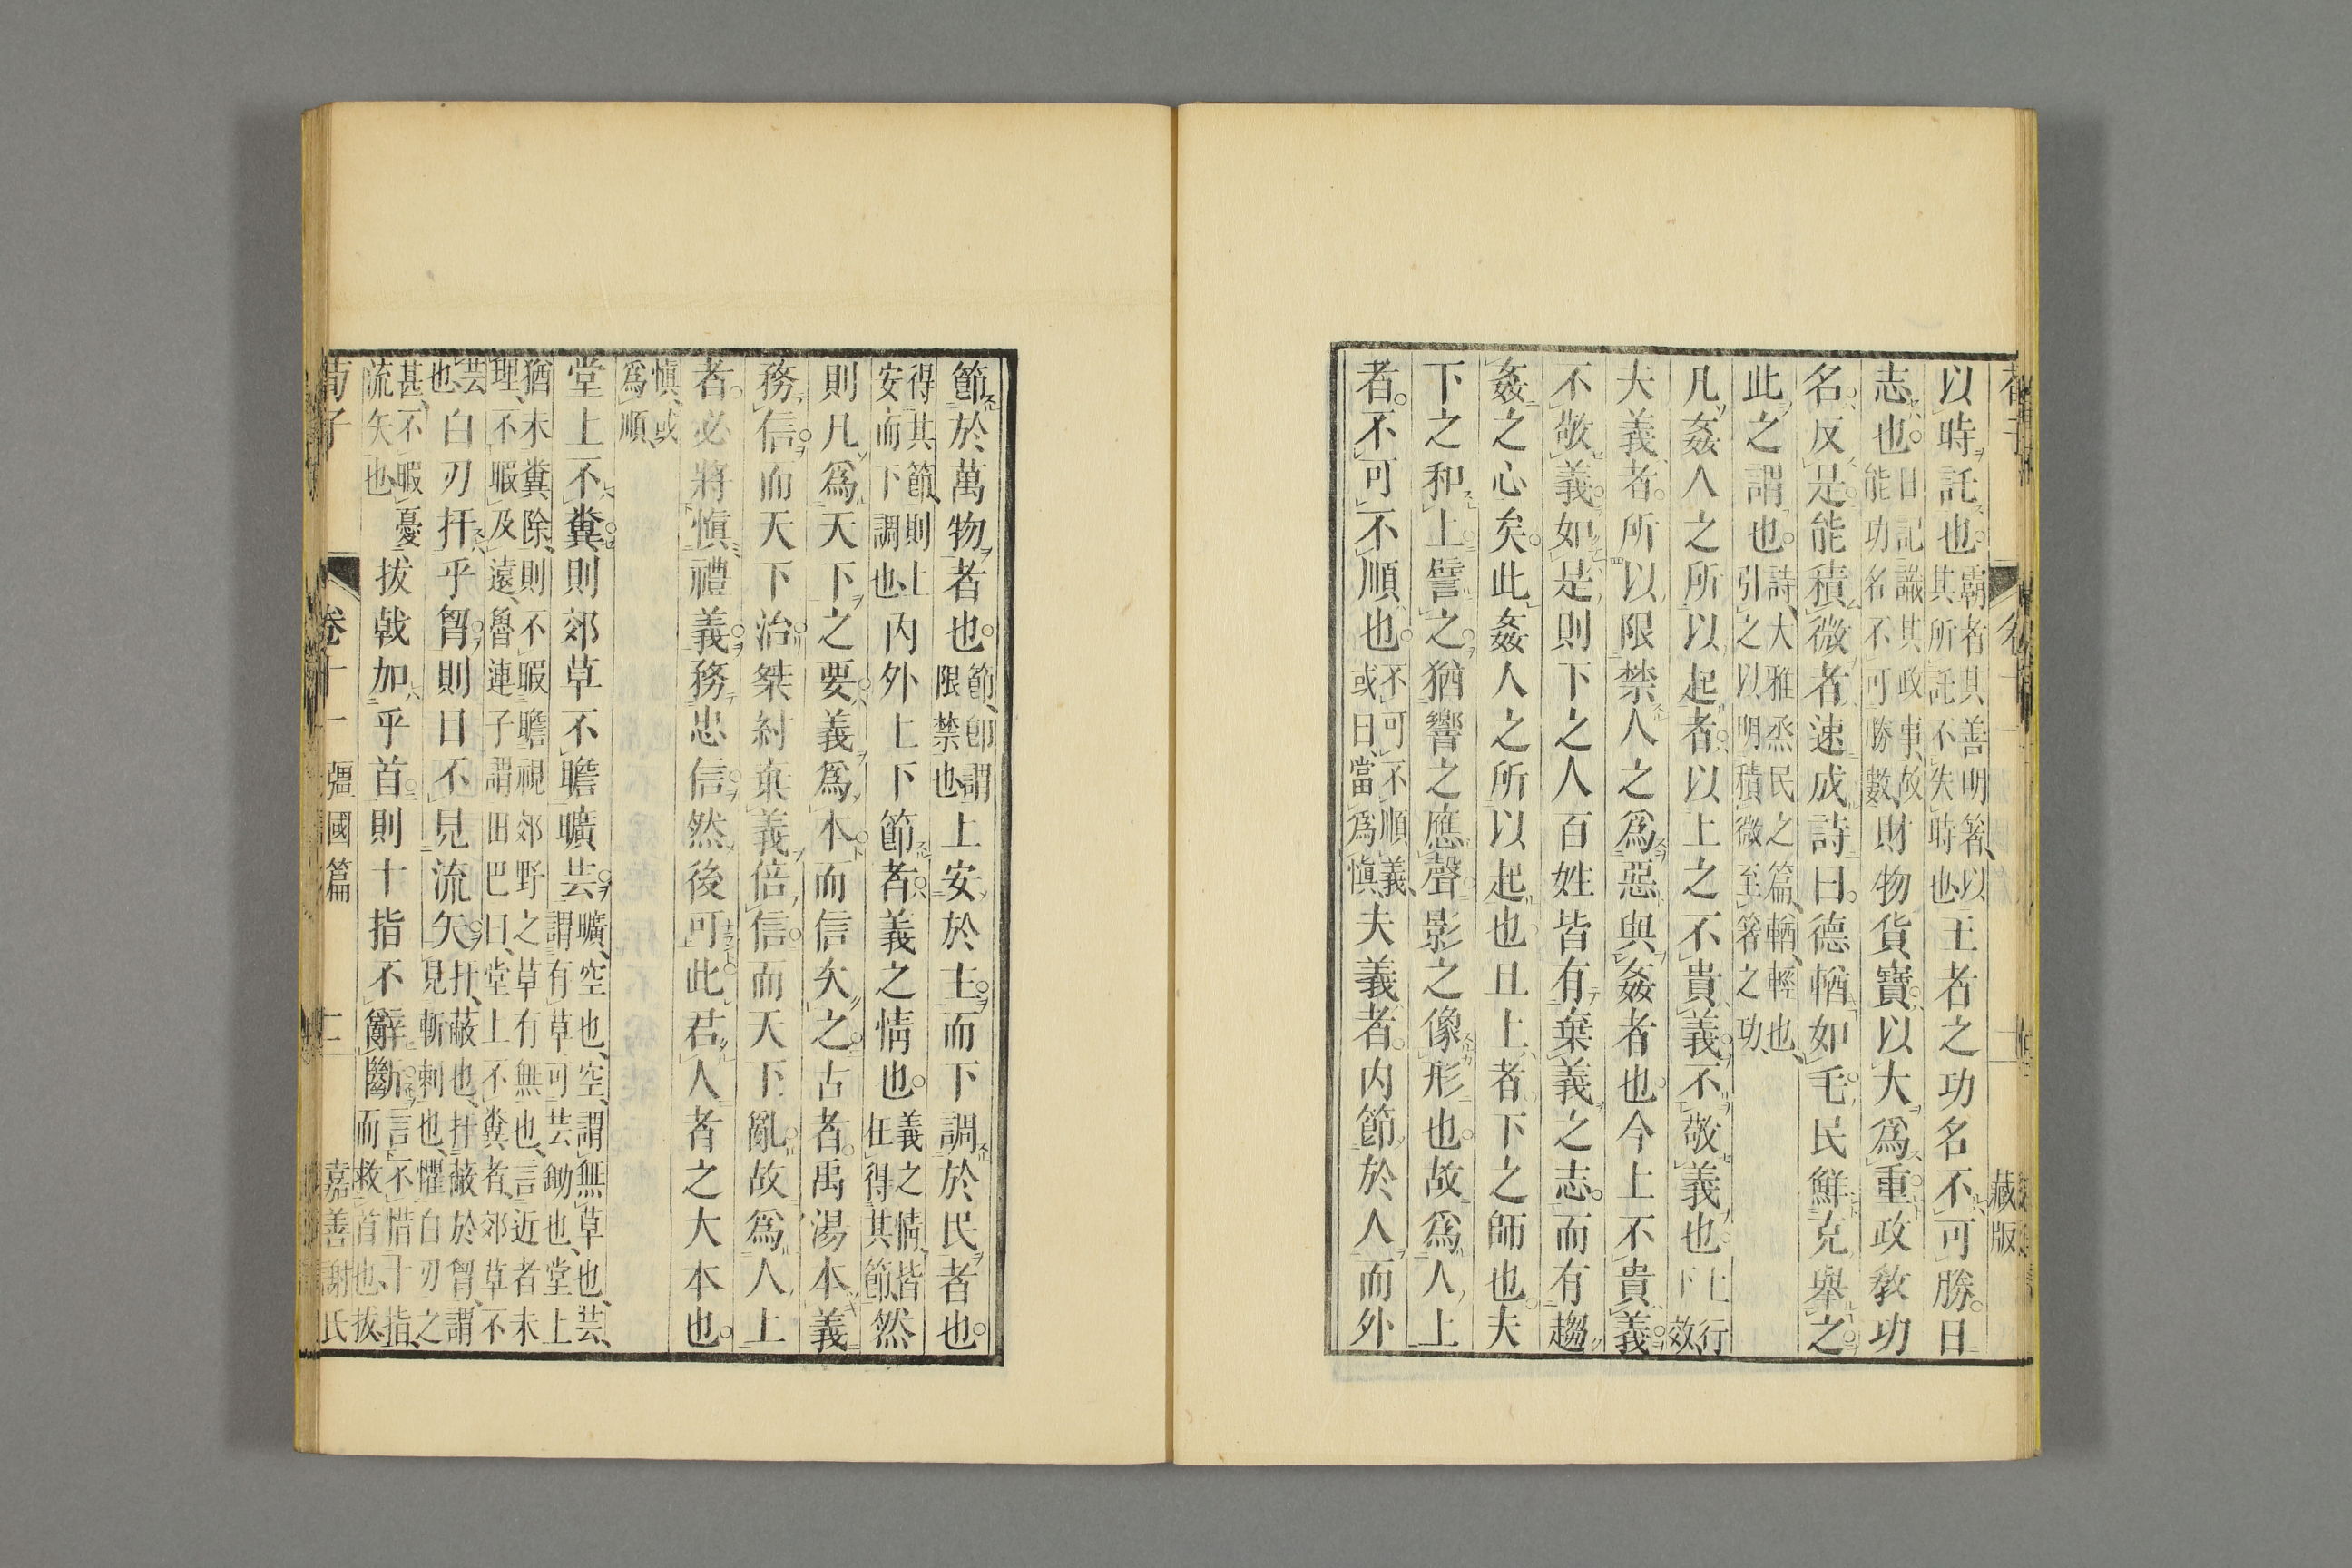 以時託也霸者其善明箸以其所託不失時也王者之功名不可勝日
志也日記識其政事故能功名不可勝數財物貨寶以大爲重政敎功
名反是能積微者速成詩曰德輶如毛民鮮克舉之
此之謂也詩大雅烝民之篇輶輕也引之以明積微至箸之功
凡姦人之所以起者以上之不貴義不敬義也上行下效
夫義者所以限禁人之爲惡與姦者也今上不貴義
不敬義如是則下之人百姓皆有棄義之志而有趨
姦之心矣此姦人之所以起也且上者下之師也夫
下之和上譬之猶響之應聲影之像形也故爲人上
者不可不順也不可不順義或曰當爲愼夫義者内節於人而外
節於萬物者也節卽謂限禁也上安於主而下調於民者也
得其節則上安而下調也内外上下節者義之情也義之情皆在得其節然
則凡爲天下之要義爲本而信次之古者禹湯本義
務信而天下治桀紂棄義倍信而天下亂故爲人上
者必將愼禮義務忠信然後可此君人者之大本也
愼或爲順
堂上不糞則郊草不瞻曠芸曠空也空謂無草也芸謂有草可芸鋤也堂上
猶未糞除則不暇瞻視郊野之草有無也言近者未理不暇及遠魯連子謂田巴曰堂上不糞者郊草不
芸也白刃扞乎胷則目不見流矢扞蔽也扞蔽於胷謂見斬刺也懼白刃之
甚不暇憂流矢也拔戟加乎首則十指不辭斷言不惜十指而救首也拔
荀子 卷十一 彊國篇 二 嘉善謝氏